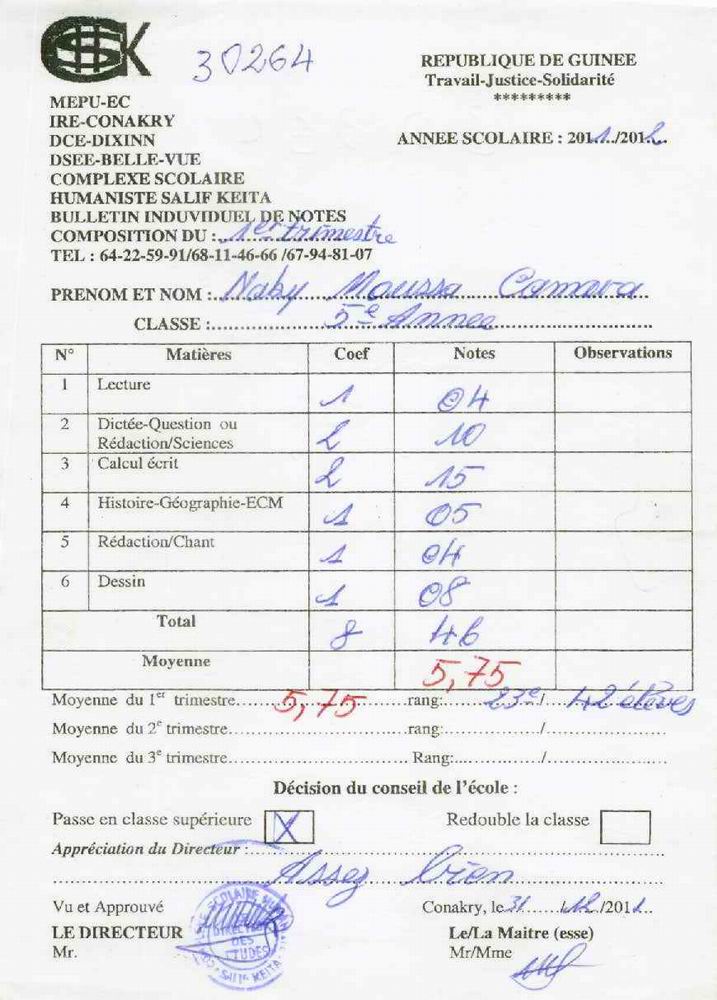 SK
30264
REPUBLIQUE DE GUINEE
Travail-Justice-Solidarité
*********
MEPU-EC
IRE-CONAKRY
DCE-DIXINN
ANNEE SCOLAIRE : 2011../2012..
DSEE-BELLE-VUE
COMPLEXE SCOLAIRE
HUMANISTE SALIF KEITA
BULLETIN INDUVIDUEL DE NOTES
COMPOSITION DU : 1er trimestre
TEL : 64-22-59-91/68-11-46-66 /67-94-81-07
PRENOM ET NOM : Naby Moussa Camara
CLASSE : 5e Annee
N° Matières Coef Notes Observations
1 Lecture 1 04
2 Dictée-Question ou Rédaction/Sciences 2 10
3 Calcul écrit 2 15
4 Histoire-Géographie-ECM 1 05
5 Rédaction/Chant 1 04
6 Dessin 1 08
Total 8 46
Moyenne 5,75
Moyenne du 1er trimestre 5,75 rang: 23e / 42 élèves
Moyenne du 2e trimestre rang: /
Moyenne du 3e trimestre Rang: /
Décision du conseil de l'école :
Passe en classe supérieure X Redouble la classe
Appréciation du Directeur :
Assez bien
Vu et Approuvé Conakry, le 31 / 12 /2011..
LE DIRECTEUR Le/La Maitre (esse)
Mr. Mr/Mme
DIRECTION DES ETUDES
SALIF KEITA